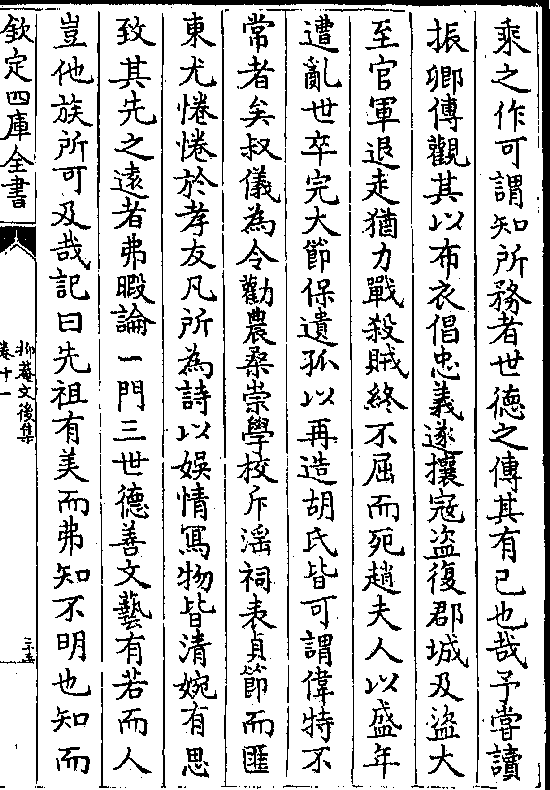 乘之作可謂知所務者世德之傳其有已也哉予嘗讀
振卿傳觀其以布衣倡忠義遂攘寇盜復郡城及盜大
至官軍退走猶力戰殺賊終不屈而死趙夫人以盛年
遭亂世卒完大節保遺孤以再造胡氏皆可謂偉特不
常者矣叔儀為令勸農桑崇學校斥淫祠表貞節而匪
東尤惓惓於孝友凡所為詩以娛情寫物皆清婉有思
致其先之遠者弗暇論一門三世德善文藝有若而人
豈他族所可及哉記曰先祖有美而弗知不明也知而
欽定四庫全書
抑菴文後集
卷十一